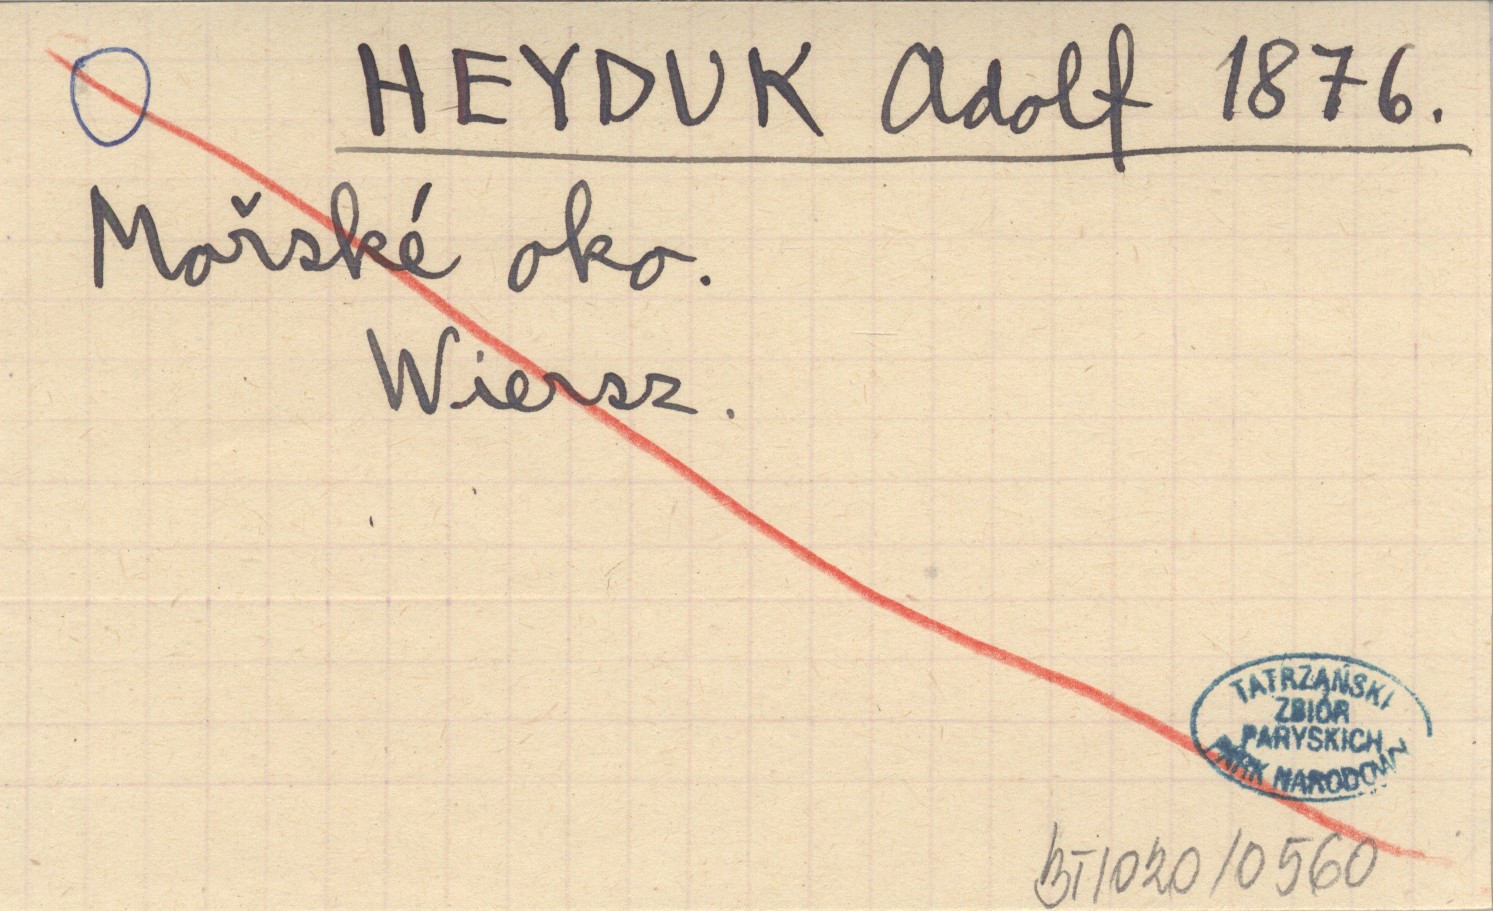 HEYDUK Adolf 1876.
Mořské oko.
Wiersz.
TATRZAŃSKI
ZBIÓR
PARYSKICH
PARK NARODOWY
BT/020/0560